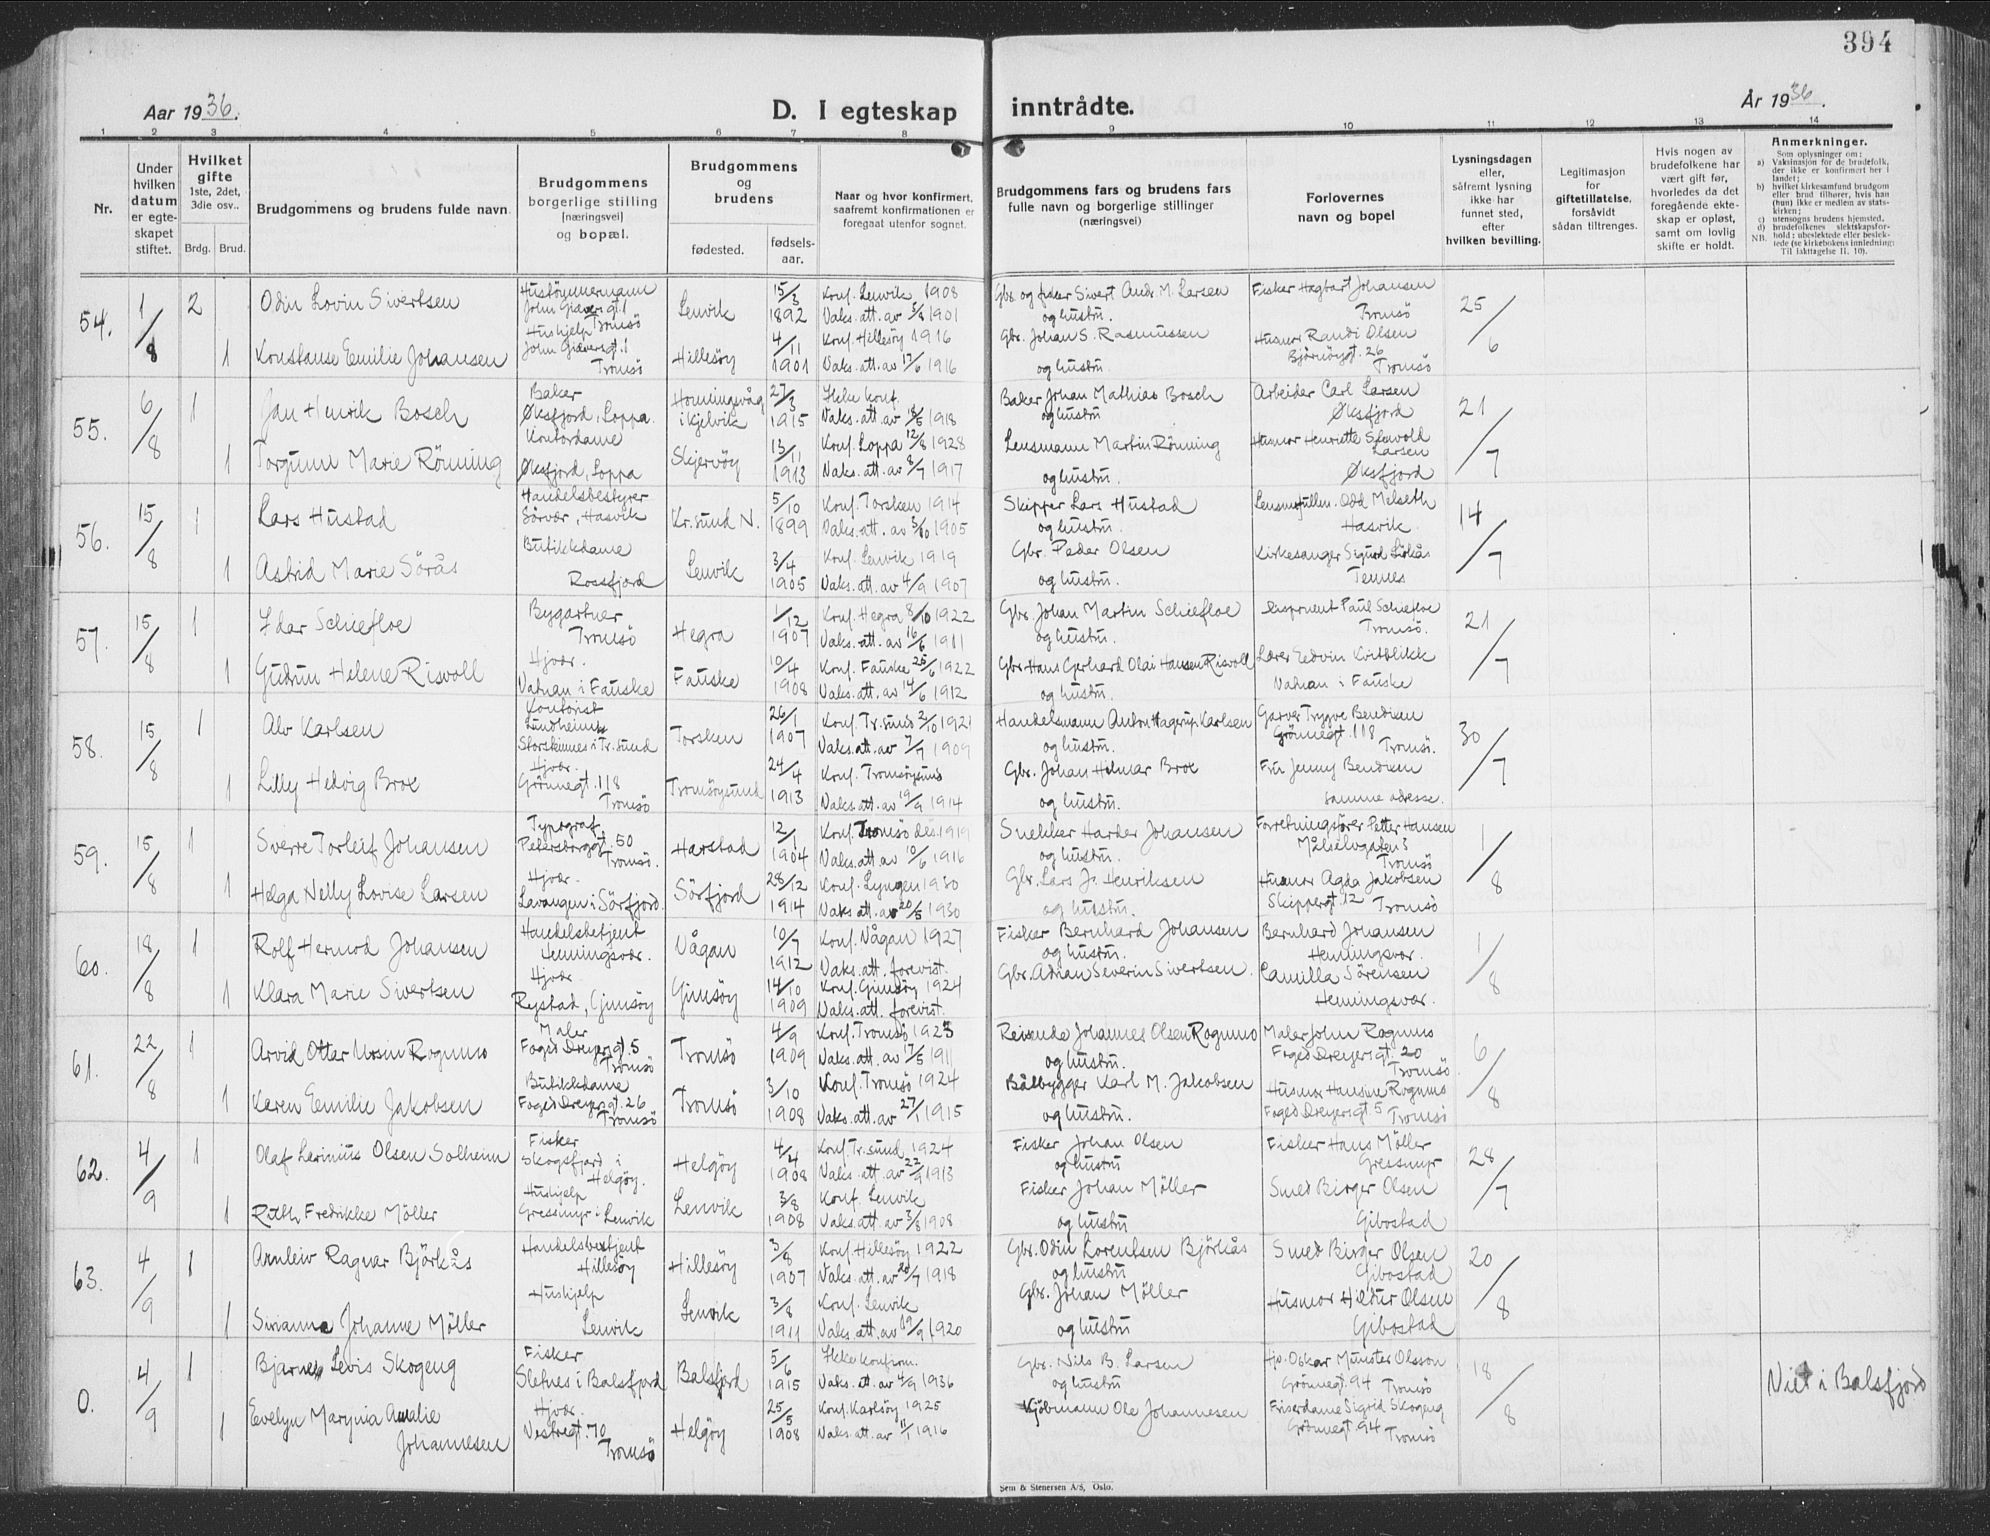 394
Aar 1936.
D. I egteskap inntrådte.
År 1936.
1 2 3 4 5 6 7 8 9 10 11 12 13 14
Nr.
Under hvilken datum er egteskapet stiftet.
Hvilket gifte 1ste, 2det, 3die osv..
Brdg. Brud.
Brudgommens og brudens fulde navn.
Brudgommens borgerlige stilling (næringsvei) og bopæl.
Brudgommens og brudens
fødested. fødselsaar.
Naar og hvor konfirmert, saafremt konfirmationen er foregaat utenfor sognet.
Brudgommens fars og brudens fars fulle navn og borgerlige stillinger (næringsvei)
Forlovernes navn og bopel
Lysningsdagen eller, såfremt lysning ikke har funnet sted, efter hvilken bevilling.
Legitimasjon for giftetillatelse, forsåvidt sådan tiltrenges.
Hvis nogen av brudefolkene har vært gift før, hvorledes da det foregående ekteskap er opløst, samt om lovlig skifte er holdt.
Anmerkninger.
Som oplysninger om:
a) Vaksinasjon for de brudefolk, der ikke er konfirmert her i landet;
b) hvilket kirkesamfund brudgom eller brud tilhører, hvis han (hun) ikke er medlem av statskirken;
c) utensogns brudens hjemsted.
d) brudefolkenes slektskapsforhold: ubeslektede eller beslektede (se kirkebokens innledning:
NB. Til iakttagelse II. 10).
54. 1/8 2 Odin Lovin Sivertsen John Giæversgt. 1 Tromsö Lenvik 15/3 1892 Konf. Lenvik 1908 Vaks. att. av 5/8 1901 Gbr. og fisker Sivert Andr. M. Larsen og hustru. Fisker Hagbart Johansen Tromsö 25/6
1 Konstanse Emilie Johansen Hushjelp John Giæversgt. 1 Tromsö Hillesöy 4/11 1901 Konf. Hillesöy 1916 Vaks. att. av 17/6 1916 Gbr. Johan S. Rasmussen og hustru. Husmor Randi Olsen Björnöygt. 26 Tromsö
55. 6/8 1 Jan Henrik Bosch Baker Øksfjord, Loppa. Honningsvåg i Kjelvik 27/3 1915 Ikke konf. Vaks. att. av 18/5 1918 Baker Johan Mathias Bosch og hustru Arbeider Carl Larsen Øksfjord 21/7
1 Torgunn Marie Rönning Kontordame Øksfjord, Loppa Skjervöy 13/11 1913 Konf. Loppa 12/8 1928 Vaks. att. av 3/7 1917 Lensmann Martin Rönning og hustru. Husmor Henriette Stenvold Larsen Øksfjord
56. 15/8 1 Lars Hustad Handelsbestyrer Sörvær, Hasvik Kr.sund N. 5/10 1899 Konf. Torsken 1914 Vaks. att. av 3/10 1905 Skipper Lars Hustad og hustru. Lensm.fullm. Odd Melseth Hasvik. 14/7
1 Astrid Marie Sörås Butikkdame Rossfjord Lenvik 3/4 1905 Konf. Lenvik 1919 Vaks. att. av 4/9 1907 Gbr. Peder Olsen og hustru. Kirkesanger Sigurd Tennes
57. 15/8 1 Idar Schiefloe Bygartner Tromsö Hegra 1/12 1907 Konf. Hegra 8/10 1922 Vaks. att. av 16/6 1911 Gbr. Johan Martin Schiefloe og hustru. Disponent Paul Schiefloe Tromsö. 21/7
1 Gudrun Helene Risvoll Hjvær. Vatnan i Fauske Fauske 10/4 1908 Konf. Fauske 25/6 1922 Vaks. att. av 14/6 1912 Gbr. Hans Gerhard Olai Hansen Risvoll og hustru. Lærer Eedvin Kvitblikk Vatnan i Fauske
58. 15/8 1 Alv Karlsen Kontorist Storskinnes i Tr.sund Torsken 26/1 1907 Konf. Tr.sund 2/10 1921 Vaks. att. av 7/9 1909 Handelsmann Anton Hagerup Karlsen og hustru. Garver Trygve Bendixen Grönnegt. 118 Tromsö. 30/7
1 Lilly Hedvig Brox Hjvær. Grönnegt. 118 Tromsö Tromsöysund 24/4 1913 Konf. Tromsöysund Vaks. att. av 19/9 1914 Gbr. Johan Helmar Brox og hustru. Fru Jenny Bendixen samme adresse.
59. 15/8 1 Sverre Torleif Johansen Typograf, Petersborggt. 50 Tromsö. Harstad 12/1 1904 Konf. Tromsö des. 1919 Vaks. att. av 10/6 1916 Snekker Harder Johansen og hustru. Forretningsfører Petter Hansen Målselvgaten 3 Tromsö 1/8
1 Helga Nelly Lovise Larsen Hjvær. Lavangen i Sörfjord. Sörfjord 28/12 1914 Konf. Lyngen 1930 Vaks. att. av 20/5 1930 Gbr. Lars J. Henriksen og hustru. Husmor Agda Jakobsen Skippergt. 12 Tromsö
60. 18/8 1 Rolf Hermod Johansen Handelsbetjent Henningsvær. Vågan 10/7 1912 Konf. Vågan 1927 Vaks. att. forevist. Fisker Bernhard Johansen og hustru. Bernhard Johansen Henningsvær. 1/8
1 Klara Marie Sivertsen Hjvær. Rystad, Gimsöy Gimsöy 14/10 1909 Konf. Gimsöy 1924 Vaks. att. forevist. Gbr. Adrian Severin Sivertsen. Camilla Sörensen Henningsvær.
61. 22/8 1 Arvid Otter Ursin Rognmo Maler Foged Dreyersgt. 5 Tromsö Tromsö 4/9 1909 Konf. Tromsö 1923 Vaks. att. av 17/5 1911 Reisende Johannes Olsen Rognmo og hustru. Maler John Rognmo Foged Dreyersgt. 20 Tromsö 6/8
1 Karen Emilie Jakobsen Butikkdame Foged Dreyersgt. 26 Tromsö Tromsö 3/10 1908 Konf. Tromsö 1924 Vaks. att. av 27/1 1915 Båtbygger Karl M. Jakobsen og hustru. Husmor Hansine Rognmo Foged Dreyersgt. 5 Tromsö
62. 4/9 1 Olaf Larinius Olsen Solheim Fisker Skogsfjord i Helgöy. Helgöy 4/4 1908 Konf. Tr.sund 1924 Vaks. att. av 22/9 1913 Fisker Johan Olsen og hustru Fisker Hans Möller Gressmyr 28/7
1 Ruth Fredikke Möller Hushjelp Gressmyr i Lenvik Lenvik 3/8 1908 Konf. Lenvik Vaks. att. av 3/8 1908 Fisker Johan Möller og hustru Smed Birger Olsen Gibostad
63. 4/9 1 Arnleiv Ragnar Björkås Handelsbetjent Hillesöy Hillesöy 3/8 1907 Konf. Hillesöy 1922 Vaks. att. av 20/7 1918 Gbr. Odin Lorentsen Björkås og hustru Smed Birger Olsen Gibostad 20/8
1 Sirianna Johanne Möller Hushjelp Lenvik Lenvik 3/8 1911 Konf. Lenvik Vaks. att. av 19/9 1920 Gbr. Johan Möller og hustru Husmor Hildur Olsen Gibostad
0. 4/9 1 Bjarne Levis Skogeng Fisker Sletnes i Balsfjord Balsfjord 5/6 1915 Ikke konfirm. Vaks. att. av 4/9 1936 Gbr. Nils B. Larsen og hustru Hjv. Oskar Münster Olsson Grönnegt. 94 Tromsö 18/8 Viet i Balsfjord
1 Evelyn Marynia Amalie Johannesen Hjvær. Vestregt. 70 Tromsö Helgöy 25/5 1908 Konf. Karlsöy 1925 Vaks. att. av 11/1 1916 Kjöbmann Ole Johannesen Friserdame Sigrid Skogeng Grönnegt. 94 Tromsö
Sem & Stenersen A/S, Oslo.